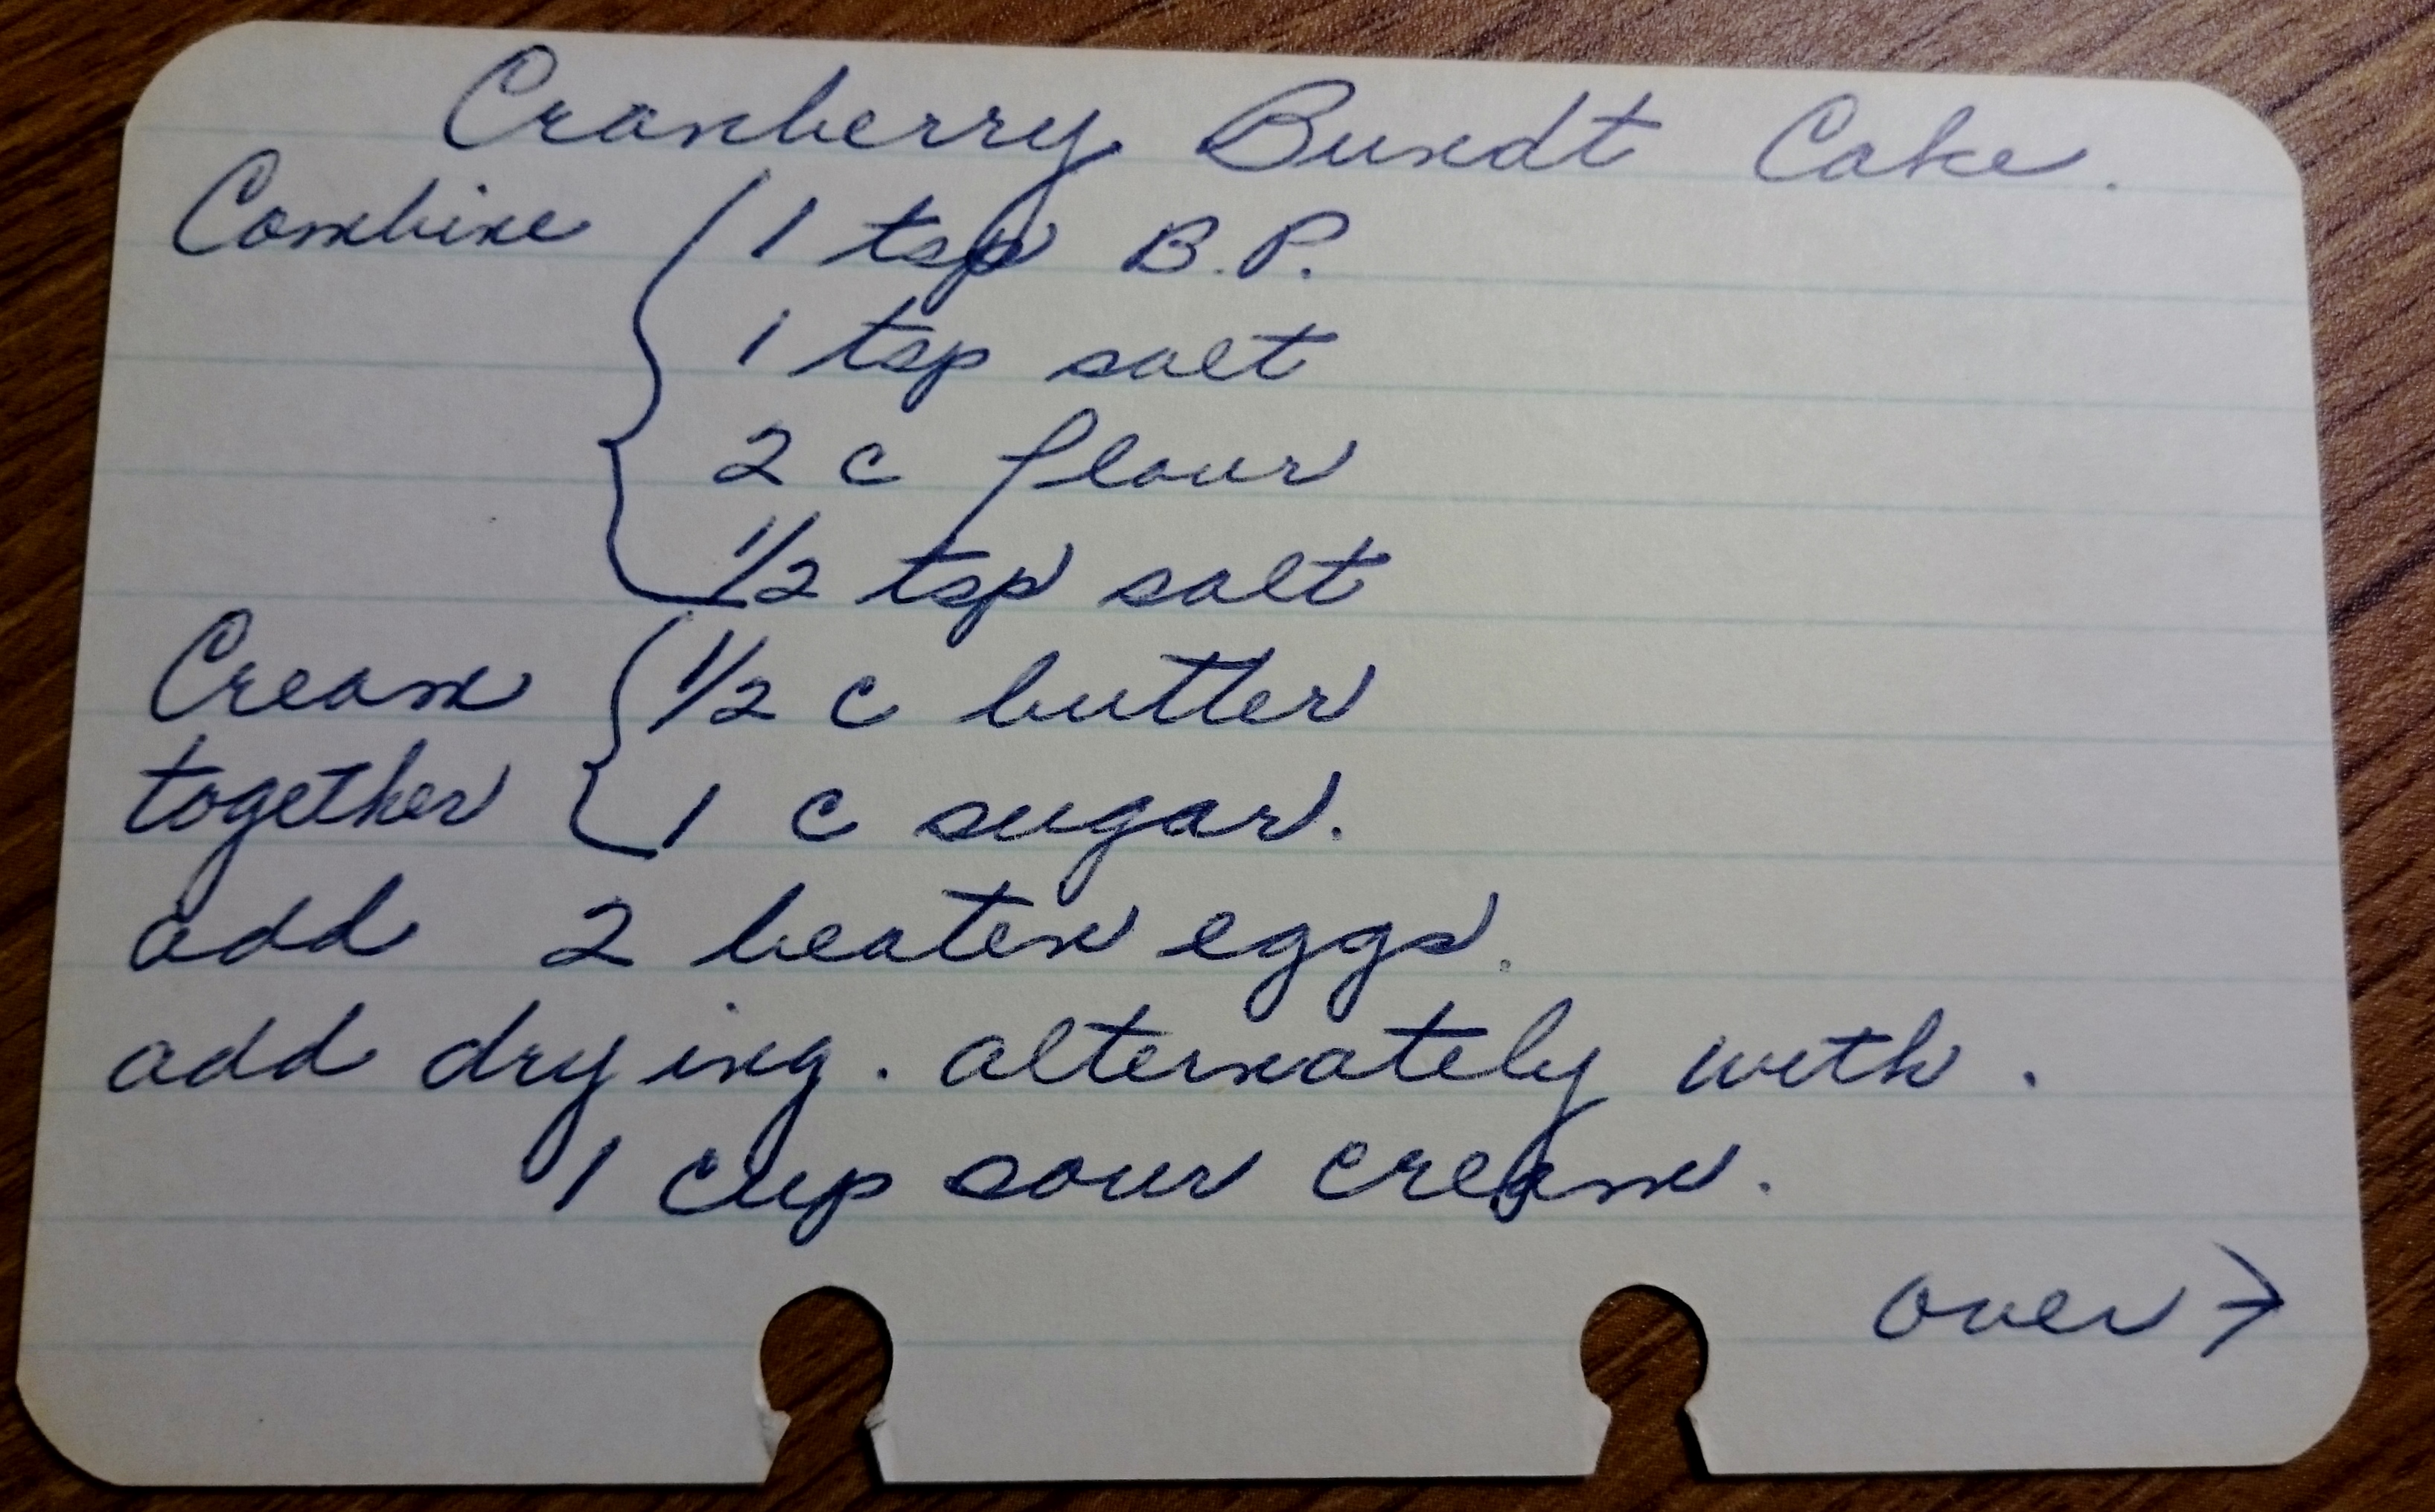 Cranberry Bundt Cake.
Combine { 1 tsp B.P.
1 tsp salt
2 c flour
1/2 tsp salt
Cream { 1/2 c butter
together 1 c sugar.
add 2 beaten eggs.
add dry ing. alternately with.
1 cup sour cream.
over →